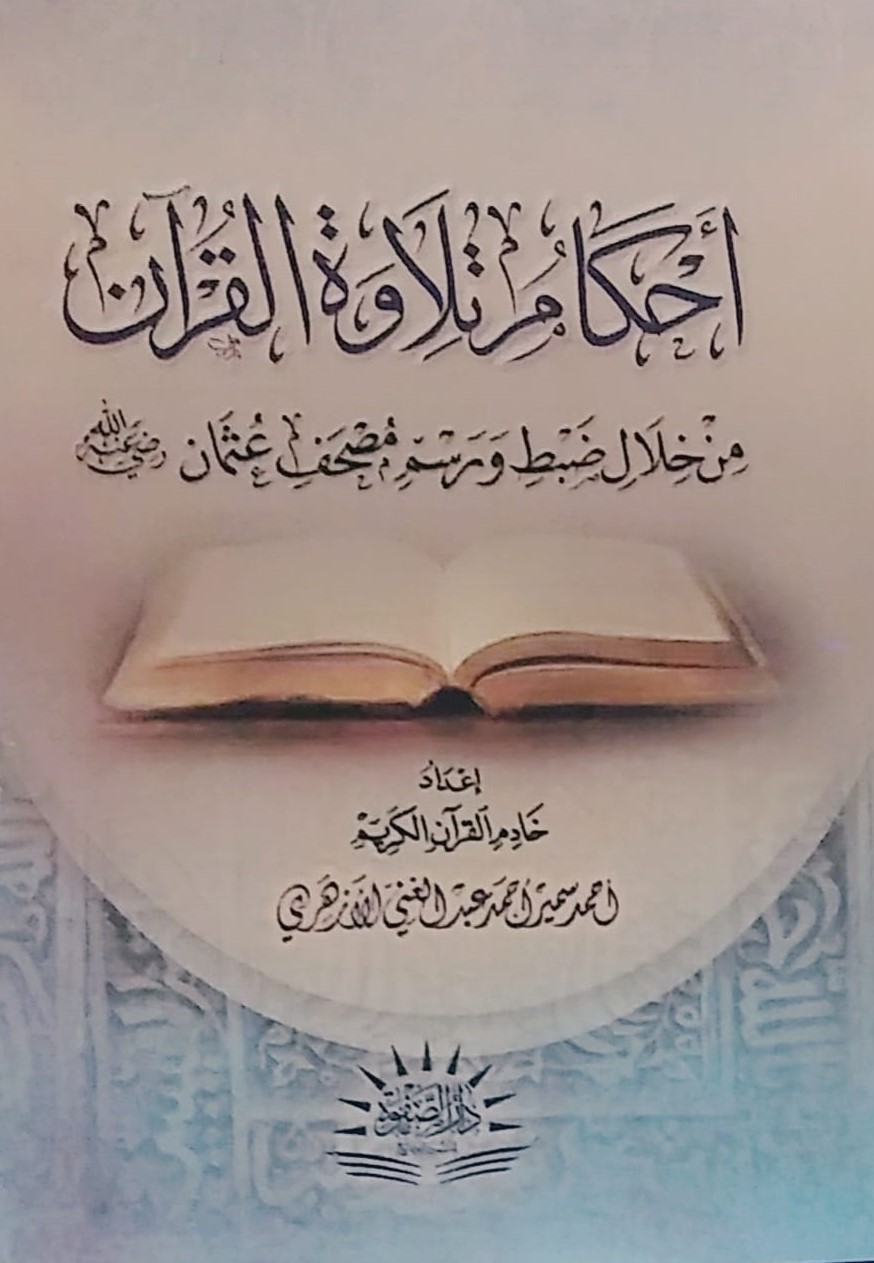 أَحْكَامُ تِلَاوَةِ الْقُرْآنِ
مِنْ خِلَالِ ضَبْطِ وَرَسْمِ مُصْحَفِ عُثْمَانَ رَضِيَ اللَّهُ عَنْهُ
إِعْدَادَ
خَادِمِ الْقُرْآنِ الْكَرِيمْ
أحمد سمير أحمد عبد الغني الأزهري
دار الصفوة